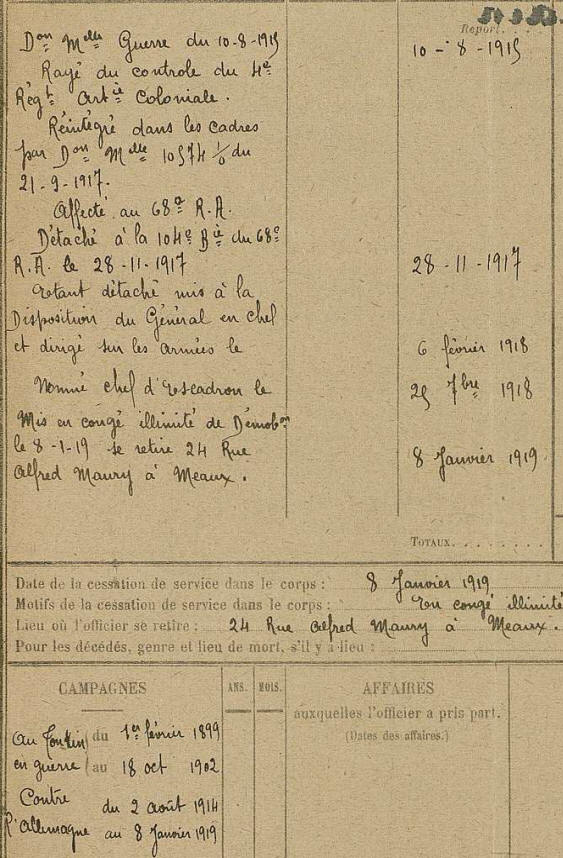 Report. . . .
Don Melle Guerre du 10-8-1915 10-8-1915
Rayé du controle du 4e
Régt Artie Coloniale.
Réintégré dans les cadres
par Don Melle 10574 1/0 du
21-9-1917.
Affecté au 68e R.A.
Détaché à la 104e Bie du 68e
R.A. le 28-11-1917 28-11-1917
Etant détaché mis à la
Disposition du Général en chef
et dirigé sur les armées le 6 février 1918
Nommé chef d'Escadron le 25 7bre 1918
Mis en congé illimité de Démobon
le 8-1-19 se retire 24 Rue 8 Janvier 1919
Alfred Maury à Meaux.
TOTAUX. . . . . . . .
Date de la cessation de service dans le corps : 8 Janvier 1919
Motifs de la cessation de service dans le corps : En congé illimité
Lieu où l'officier se retire : 24 Rue Alfred Maury à Meaux.
Pour les décédés, genre et lieu de mort, s'il y a lieu :
CAMPAGNES ANS. MOIS. AFFAIRES
auxquelles l'officier a pris part.
(Dates des affaires.)
Au Tonkin du 1er février 1899
en guerre au 18 oct 1902
Contre du 2 août 1914
l'Allemagne au 8 Janvier 1919